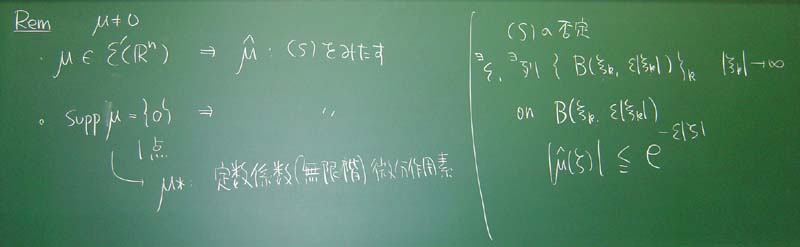 Rem μ≠0
・ μ ∈ ℰ'(ℝⁿ) ⇒ μ̂ : (S)をみたす
。 supp μ = {0} ⇒ 〃
1点
μ*: 定数係数(無限階)微分作用素
(S)の否定
∃ε, ∃列 { B(ξₖ, ε|ξₖ|) }ₖ |ξₖ|→∞
on B(ξₖ, ε|ξₖ|)
|μ̂(ζ)| ≦ e^{-ε|ζ|}